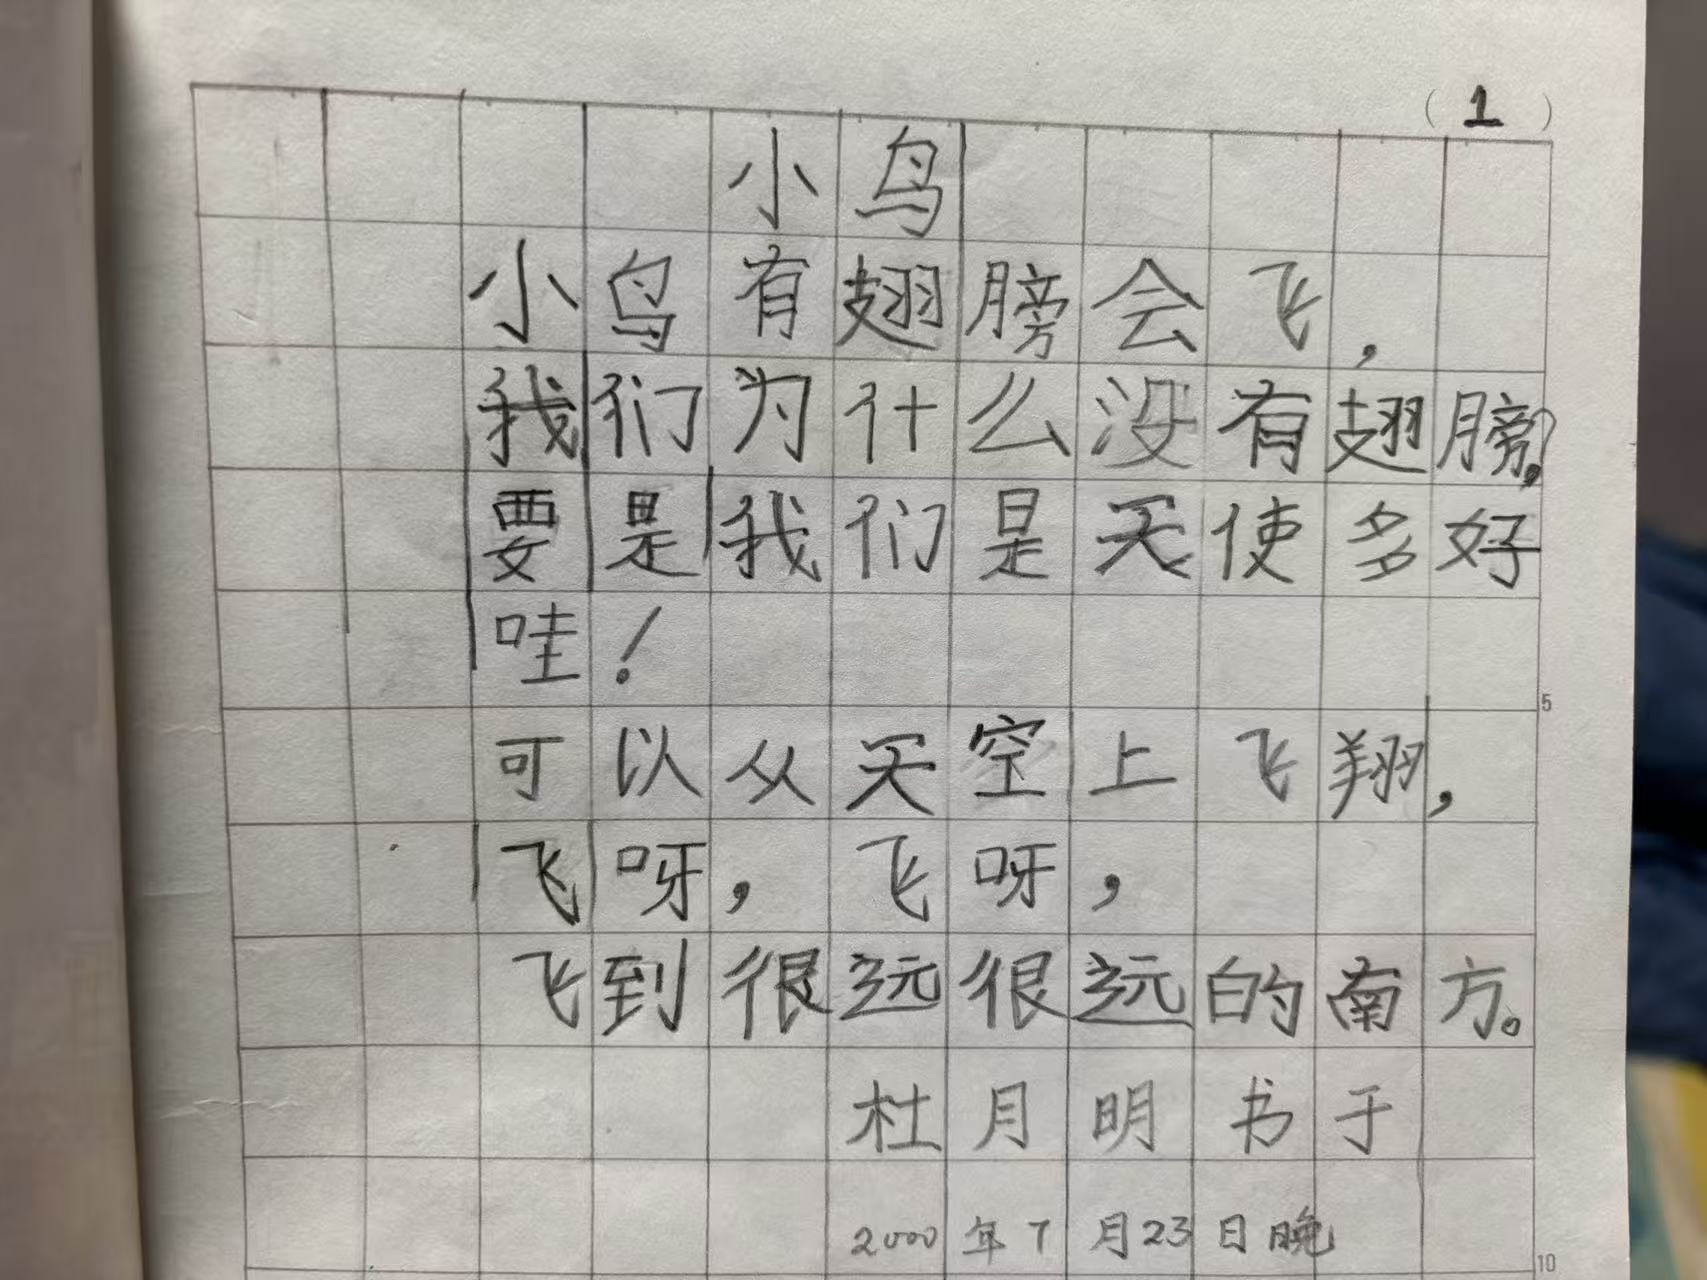 (1)
小鸟
小鸟有翅膀会飞，
我们为什么没有翅膀？
要是我们是天使多好
哇！
可以从天空上飞翔，
飞呀，飞呀，
飞到很远很远的南方。
杜月明书于
2000年7月23日晚
5
10